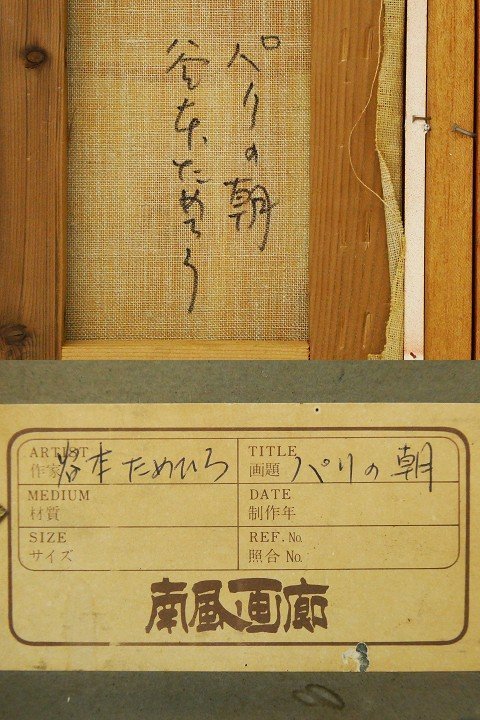 パリの朝
谷本ためひろ
ARTIST
作家 谷本ためひろ
TITLE
画題 パリの朝
MEDIUM
材質
DATE
制作年
SIZE
サイズ
REF. No.
照合 No.
南風画廊